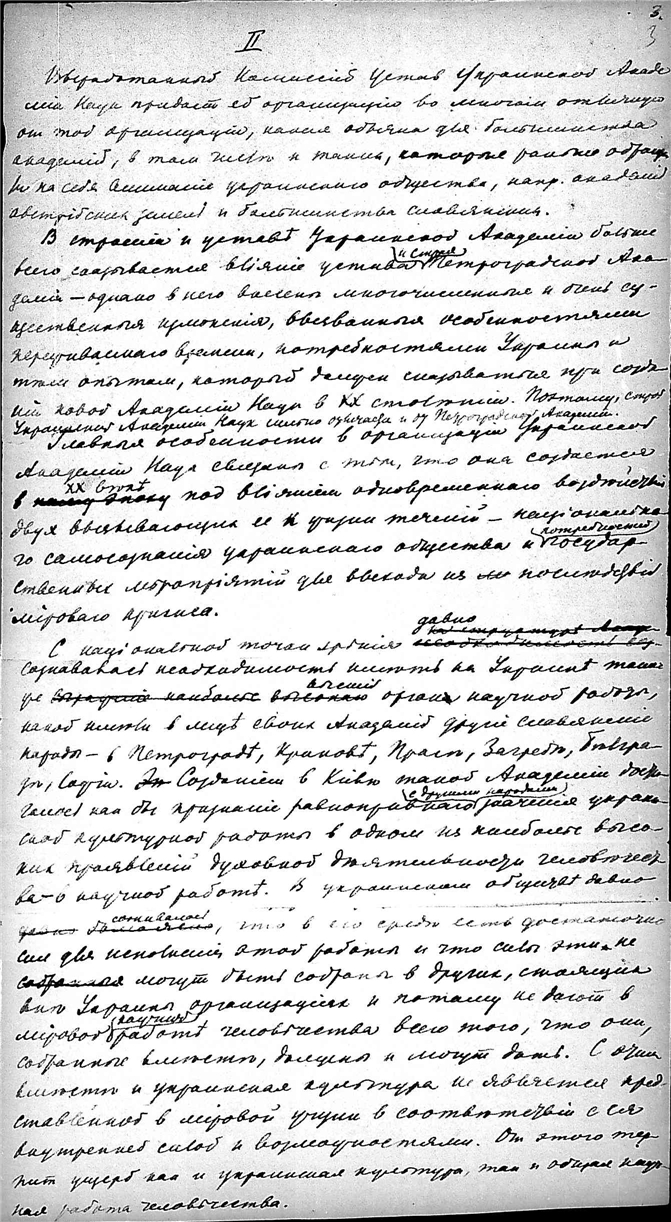 3.
3
II
Выработанный Комиссией Устав Украинской Акаде
мии Наук придает ей организацию во многом отличную
от той организации, какая обычна для большинства
академий, в том числе и таких, которые раньше обраща
ли на себя внимание украинского общества, напр. академий
австрийских земель и большинства славянских.
В строении и уставѣ Украинской Академии больше
всего сказывается влияние устава и строя Петроградской Ака-
демии – однако в него внесены многочисленные и очень су-
щественныя изменения, вызванныя особенностями
переживаемаго времени, потребностями Украины и
тем опытом, который должен сказываться при созда
нии новой Академии Наук в XX столѣтии. Поэтому, строй
Украинской Академии Наук сильно отличается и от Петроградской Академии.
Главныя особенности в организации Украинской
Академии Наук связаны с тѣм, что она создается
в XX вѣкѣ под влиянием одновременнаго воздѣйствия
двух вызывающих ее к жизни течений – национально
го самосознания украинскаго общества и потребностей государ-
ственных мѣроприятий для выхода из последствий
мирового кризиса.
С национальной точки зрѣния давно
сознавалась необходимость имѣть на Украинѣ такой
же высший орган научной работы,
какой имѣли в лицѣ своих Академий другие славянские
народы – в Петроградѣ, Краковѣ, Праге, Загребе, Бѣлгра
дѣ, Софии. Созданием в Киевѣ такой Академии дости
галось как бы признание равноправнаго с другими народами значения украин
ской культурной работы в одном из наиболее высо
ких проявлений духовной дѣятельности человѣчест
ва – в научной работѣ. В украинском обществѣ давно
сознавалось, что в его средѣ есть достаточно
сил для исполнения этой работы и что силы эти не
могут быть собраны в других, стоящих
внѣ Украины организациях и потому не дают в
мировой научной работѣ человѣчества всего того, что они,
собранные вмѣстѣ, должны и могут дать. С этим
вмѣстѣ и украинская культура не является пред
ставленной в мировой жизни в соотвѣтствии с ея
внутренней силой и возможностями. От этого тер-
пит ущерб как и украинская культура, так и общая науч
ная работа человѣчества.